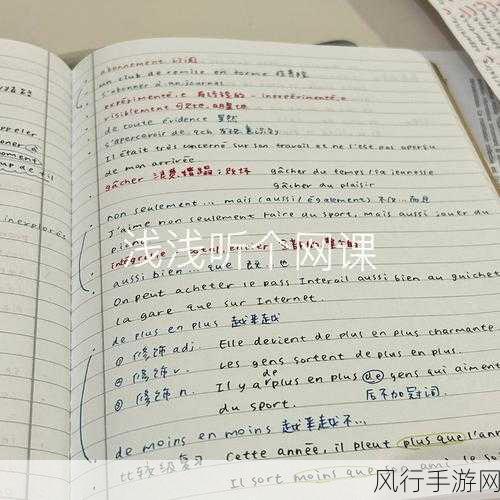 abonnement 订阅
un club de remise en forme 健身房
s'abonner à un journal
expérimenté,e 有经验的 - inexpérimenté,e
visiblement 可见地,明显地
de toute évidence 显然
s'apercevoir de qch 发现,意识到
Il était très concerné sur son travail et ne s'est pas aperçu
de mon arrivée
gâcher 浪费,糟蹋;败坏 gâcher du temps/sa jeunesse
gâcher du plaisir
non seulement... mais (aussi/également) 不仅...而且
J'aime non seulement faire du sport, mais aussi jouer du
piano
intégrale
浅浅听个网课
aussi bien... que 既 也
On peut acheter le pass Interail aussi bien au guichet
la gare que sur Internet.
de plus en plus 越来越
① 修饰 adj. Elle devient de plus en plus charmante
② 修饰 v. Les gens sortent de plus en plus.
③ 修饰 n. Il y a de plus en plus de gens qui aiment
du sport. 后不加冠词
de moins en moins 越来越不...
比较级复习 Cette année, il pleut plus que l'ann
Il sort moins que
风行手游网